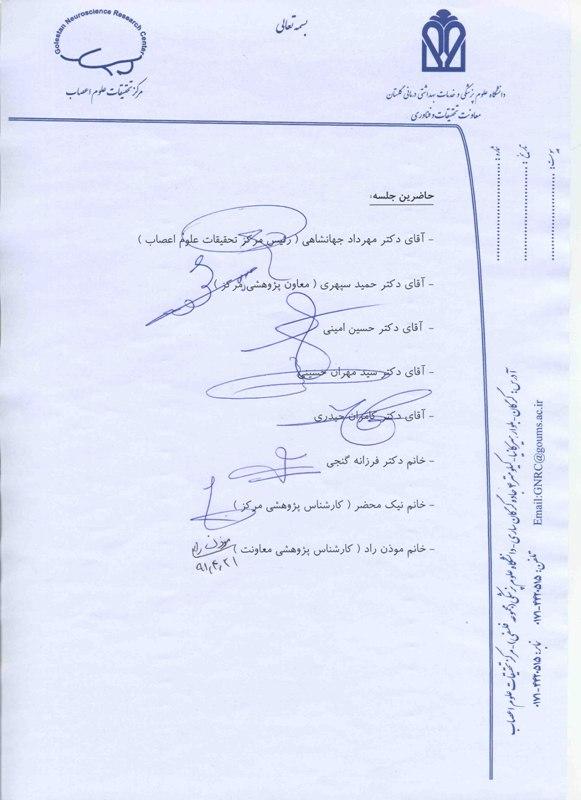 بسمه تعالی
Golestan Neuroscience Research Center
مرکز تحقیقات علوم اعصاب
دانشگاه علوم پزشکی و خدمات بهداشتی درمانی گلستان
معاونت تحقیقات و فناوری
شماره:
تاریخ:
پیوست:
حاضرین جلسه:
- آقای دکتر مهرداد جهانشاهی ( رئیس مرکز تحقیقات علوم اعصاب )
- آقای دکتر حمید سپهری ( معاون پژوهشی مرکز )
- آقای دکتر حسین امینی
- آقای دکتر سید مهران حسینی
- آقای دکتر کامران حیدری
- خانم دکتر فرزانه گنجی
- خانم نیک محضر ( کارشناس پژوهشی مرکز )
- خانم موذن راد ( کارشناس پژوهشی معاونت )
موذن راد
۹۱,۴,۲۱
آدرس: گرگان-بلوار هیرکانیا-کیلومتر ۴ جاده گرگان ساری-دانشگاه علوم پزشکی (مجموعه فلسفی)-مرکز تحقیقات علوم اعصاب
تلفن: ۰۱۷۱-۴۴۲۰۵۱۵ نمابر: ۰۱۷۱-۴۴۲۰۵۱۵
Email:GNRC@goums.ac.ir